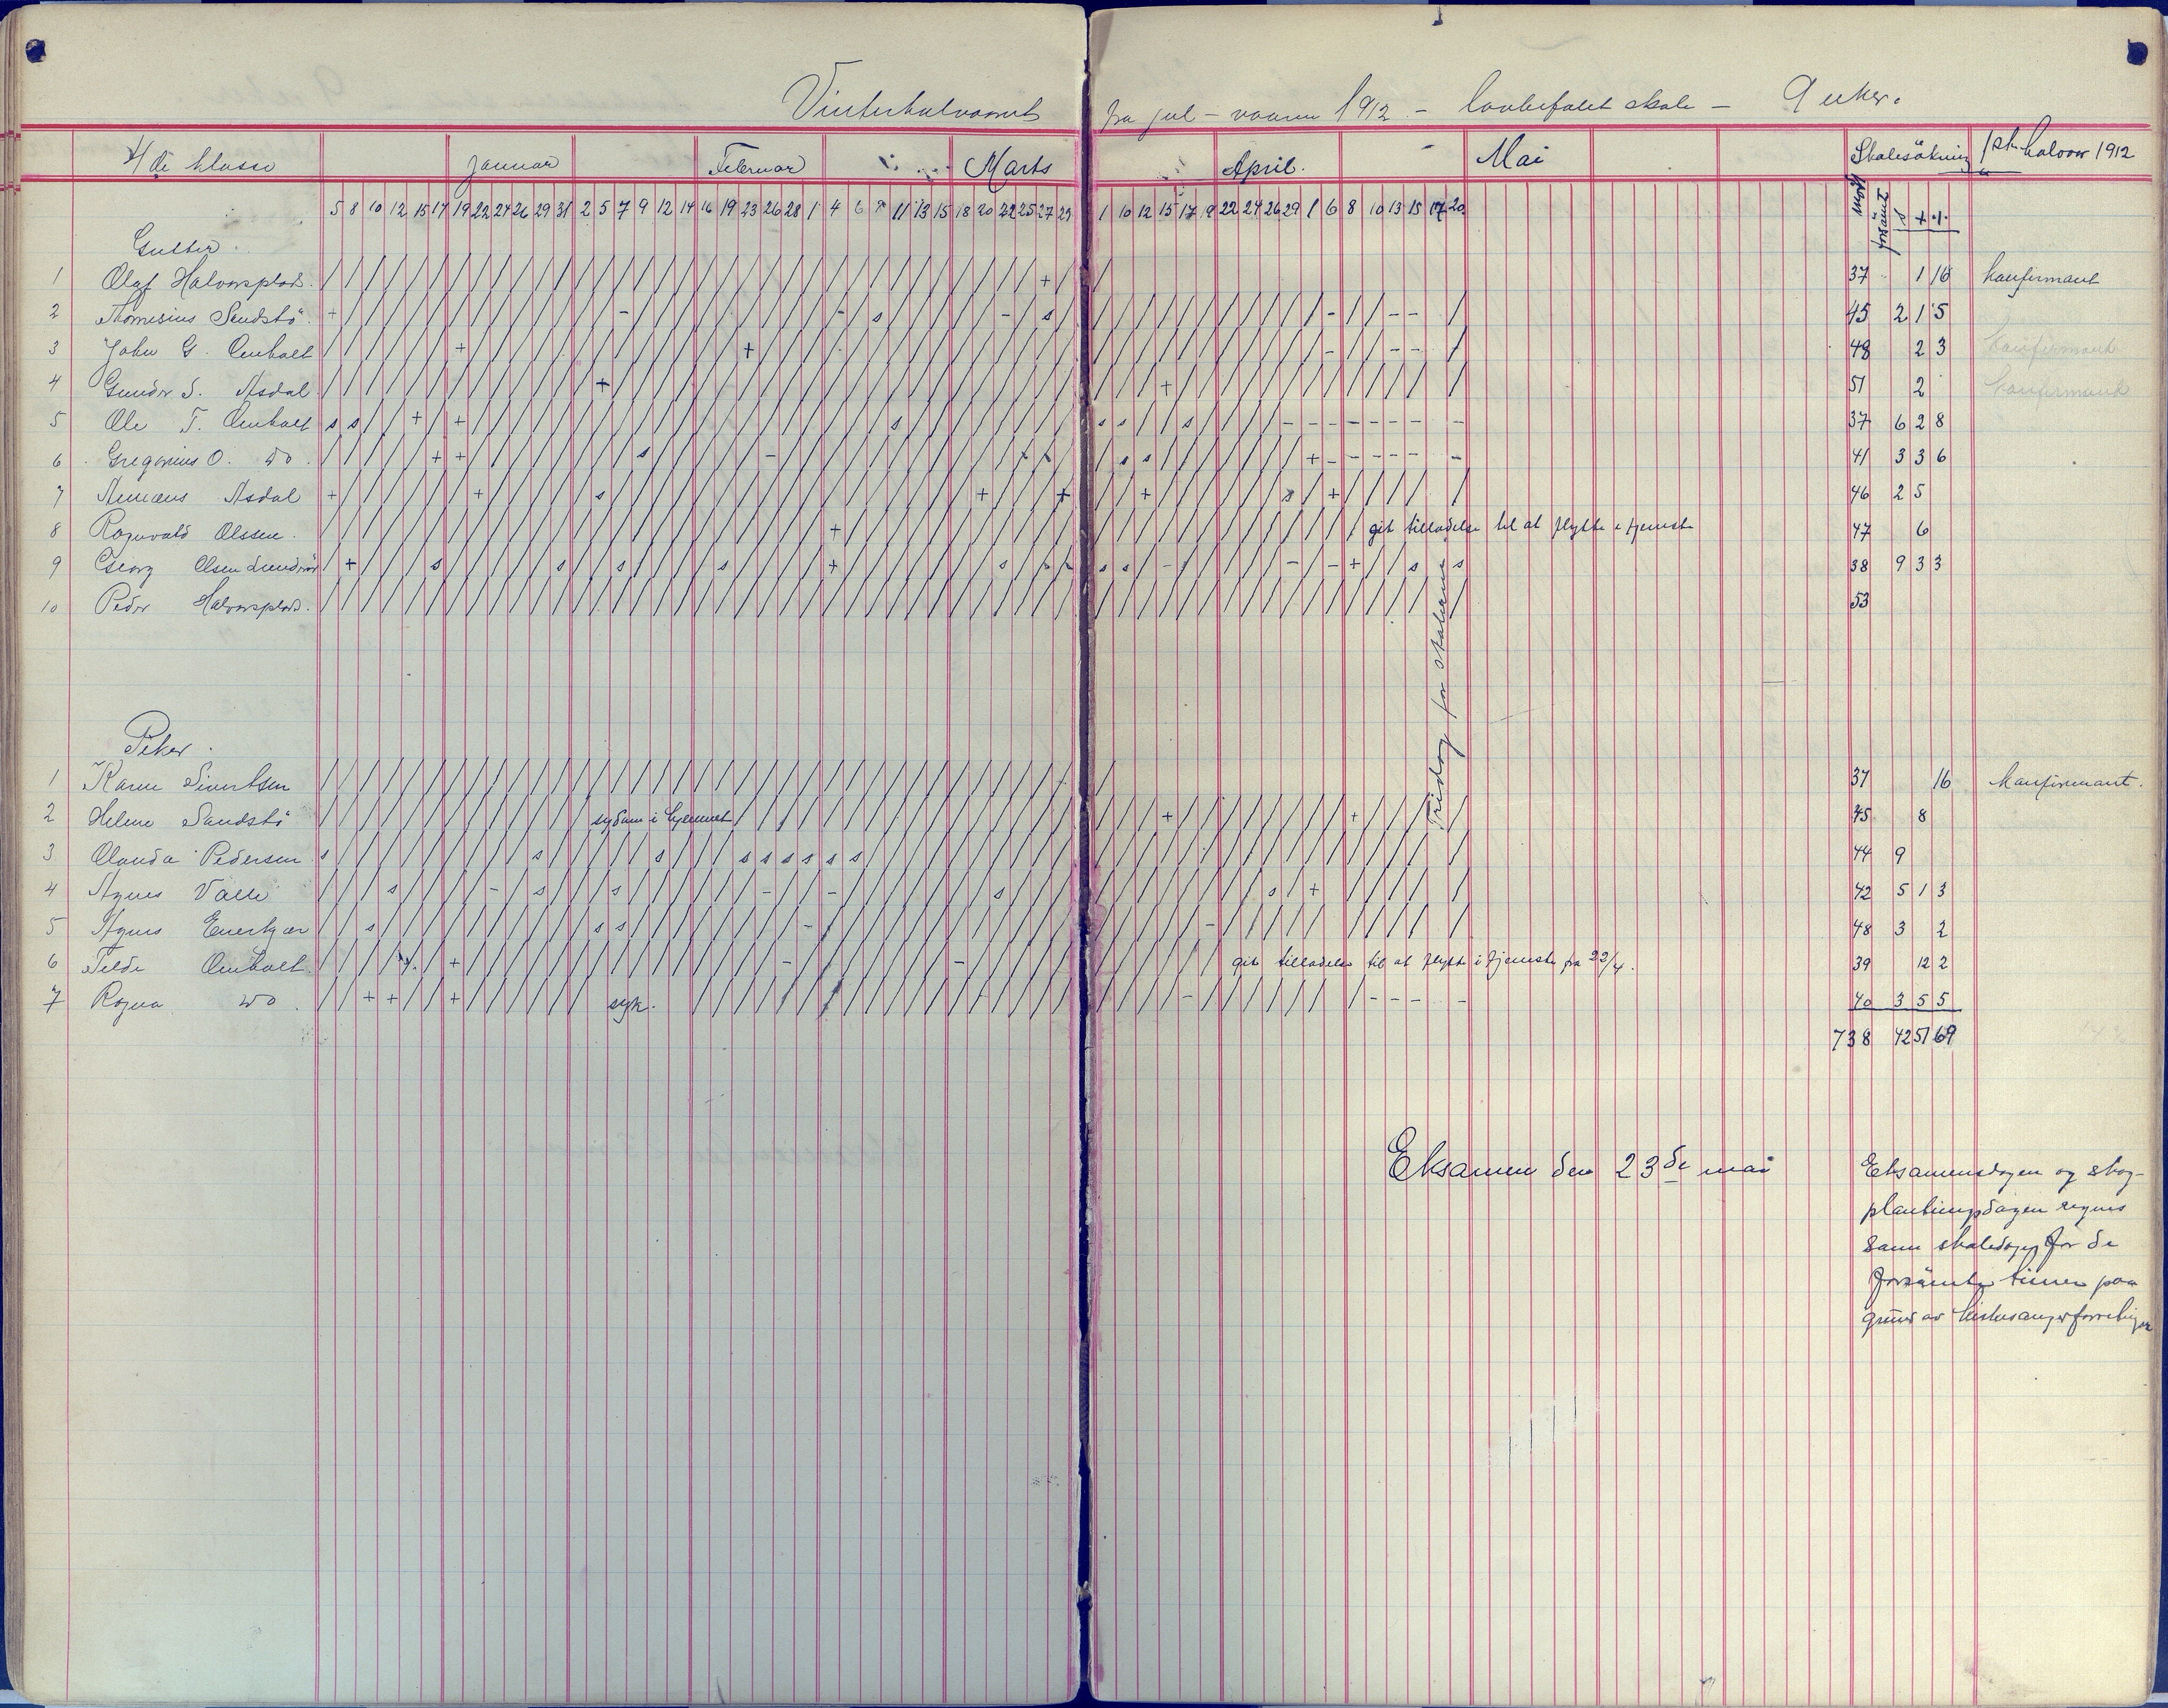 Vinterhalvaaret fra jul - vaaren 1912 - lovbefalet skole - 9 uker.
4de klasse Januar Februar Marts April. Mai Skolesökning 1ste halvaar 1912
5 8 10 12 15 17 19 22 24 26 29 31 2 5 7 9 12 14 16 19 23 26 28 1 4 6 8 11 13 15 18 20 22 25 27 29 1 10 12 15 17 19 22 24 26 29 1 6 8 10 13 15 17 20 mödt forsömt s + -
Gutter.
1 Olaf Halvorsplads. 37 1 16 konfirmant
2 Sandstö 45 2 1 5
3 John G. Omholt 48 2 3 konfirmant
4 Gunder S. Asdal 51 2 konfirmant
5 Ole T. Omholt 37 6 2 8
6 Gregorius O. do 41 3 3 6
7 Asdal 46 2 5
8 Ragnvald Olssen. git tilladelse til at flytte i tjeneste 47 6
9 Georg Olsen 38 9 3 3
10 Peder Halvorsplads. 53
Fridag for skolen
Piker.
1 Karen Sivertsen 37 16 konfirmant.
2 Helene Sandstö sygdom i hjemmet 45 8
3 Olanda Pedersen 44 9
4 Agnes Valle 42 5 1 3
5 Agnes Enerkjær 48 3 2
6 Telde Omholt git tilladelse til at flytte i tjeneste fra 22/4. 39 12 2
7 Ragna do syk. 40 3 5 5
738 42 51 69
Eksamen den 23de mai
Eksamensdagen og skog-
plantningsdagen regnes
som skoledager for de
forsömte timer paa
grund av kirkesangerforretninger